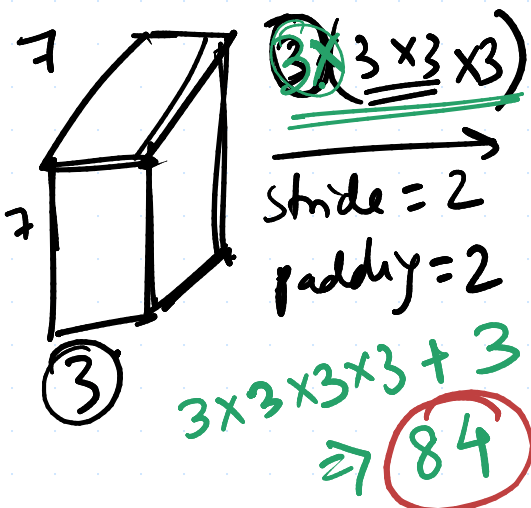 7
3 × (3 × 3 × 3)
7
stride = 2
padding = 2
3
3 × 3 × 3 × 3 + 3
⇒ 84